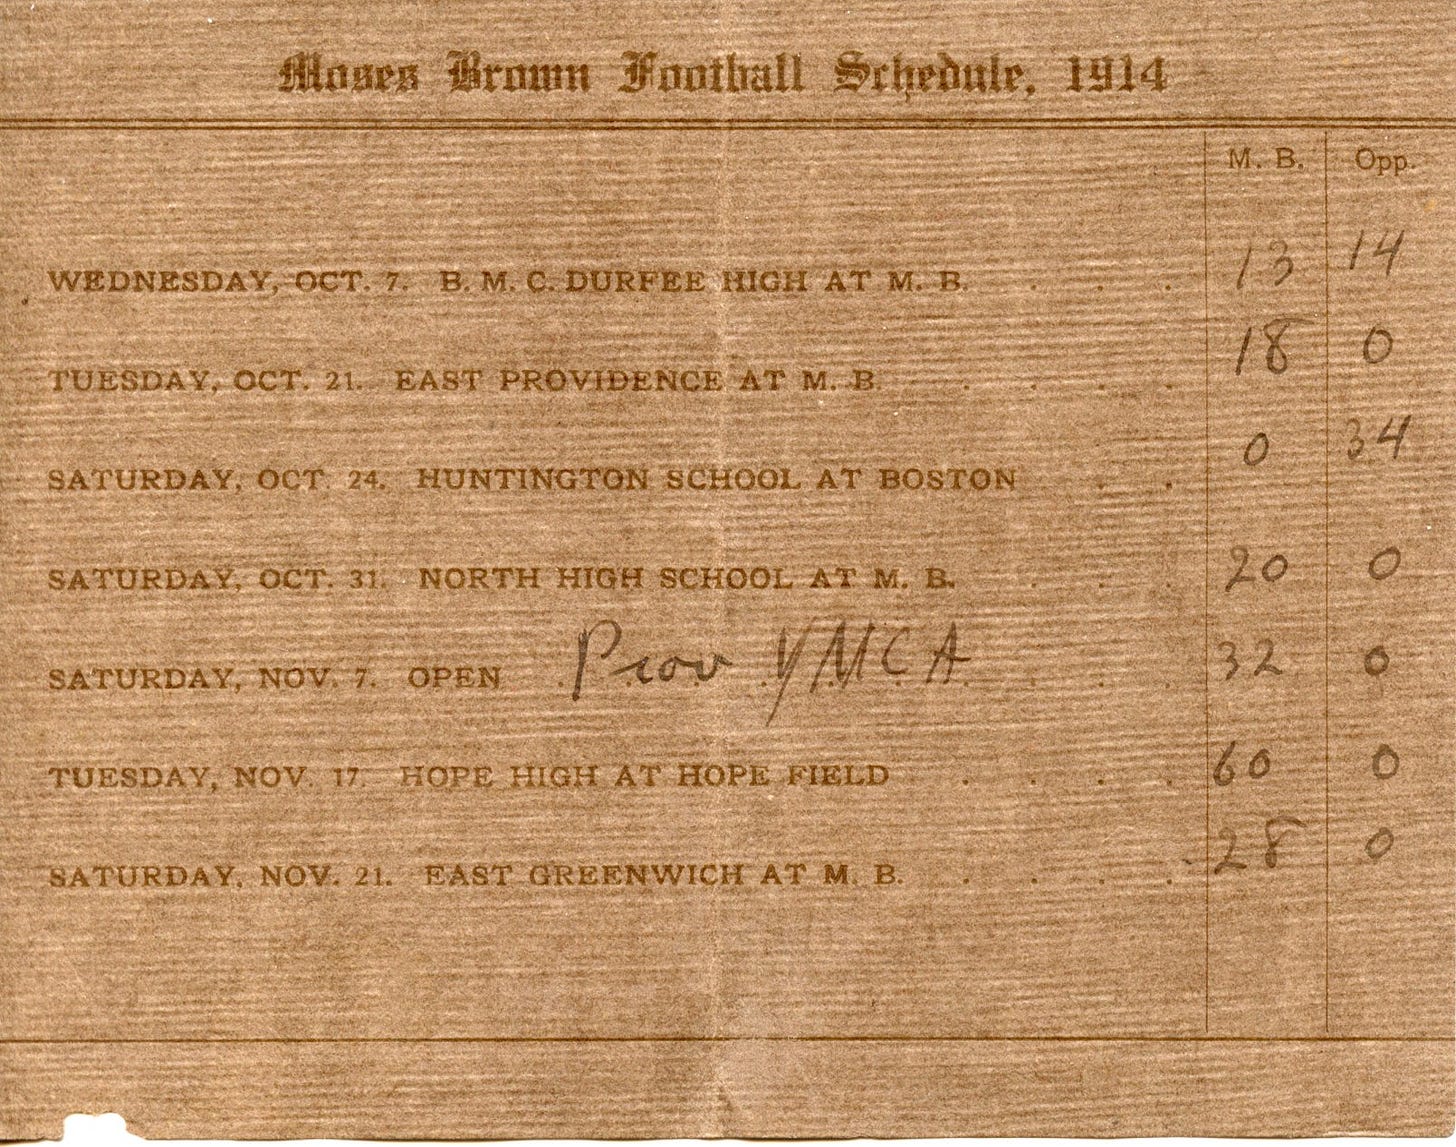 Moses Brown Football Schedule, 1914
M. B. Opp.
WEDNESDAY, OCT. 7. B. M. C. DURFEE HIGH AT M. B. . . . 13 14
TUESDAY, OCT. 21. EAST PROVIDENCE AT M. B. . . . . 18 0
SATURDAY, OCT. 24. HUNTINGTON SCHOOL AT BOSTON . . 0 34
SATURDAY, OCT. 31. NORTH HIGH SCHOOL AT M. B. . . . 20 0
SATURDAY, NOV. 7. OPEN Prov YMCA . . . 32 0
TUESDAY, NOV. 17. HOPE HIGH AT HOPE FIELD . . . . 60 0
SATURDAY, NOV. 21. EAST GREENWICH AT M. B. . . . . 28 0